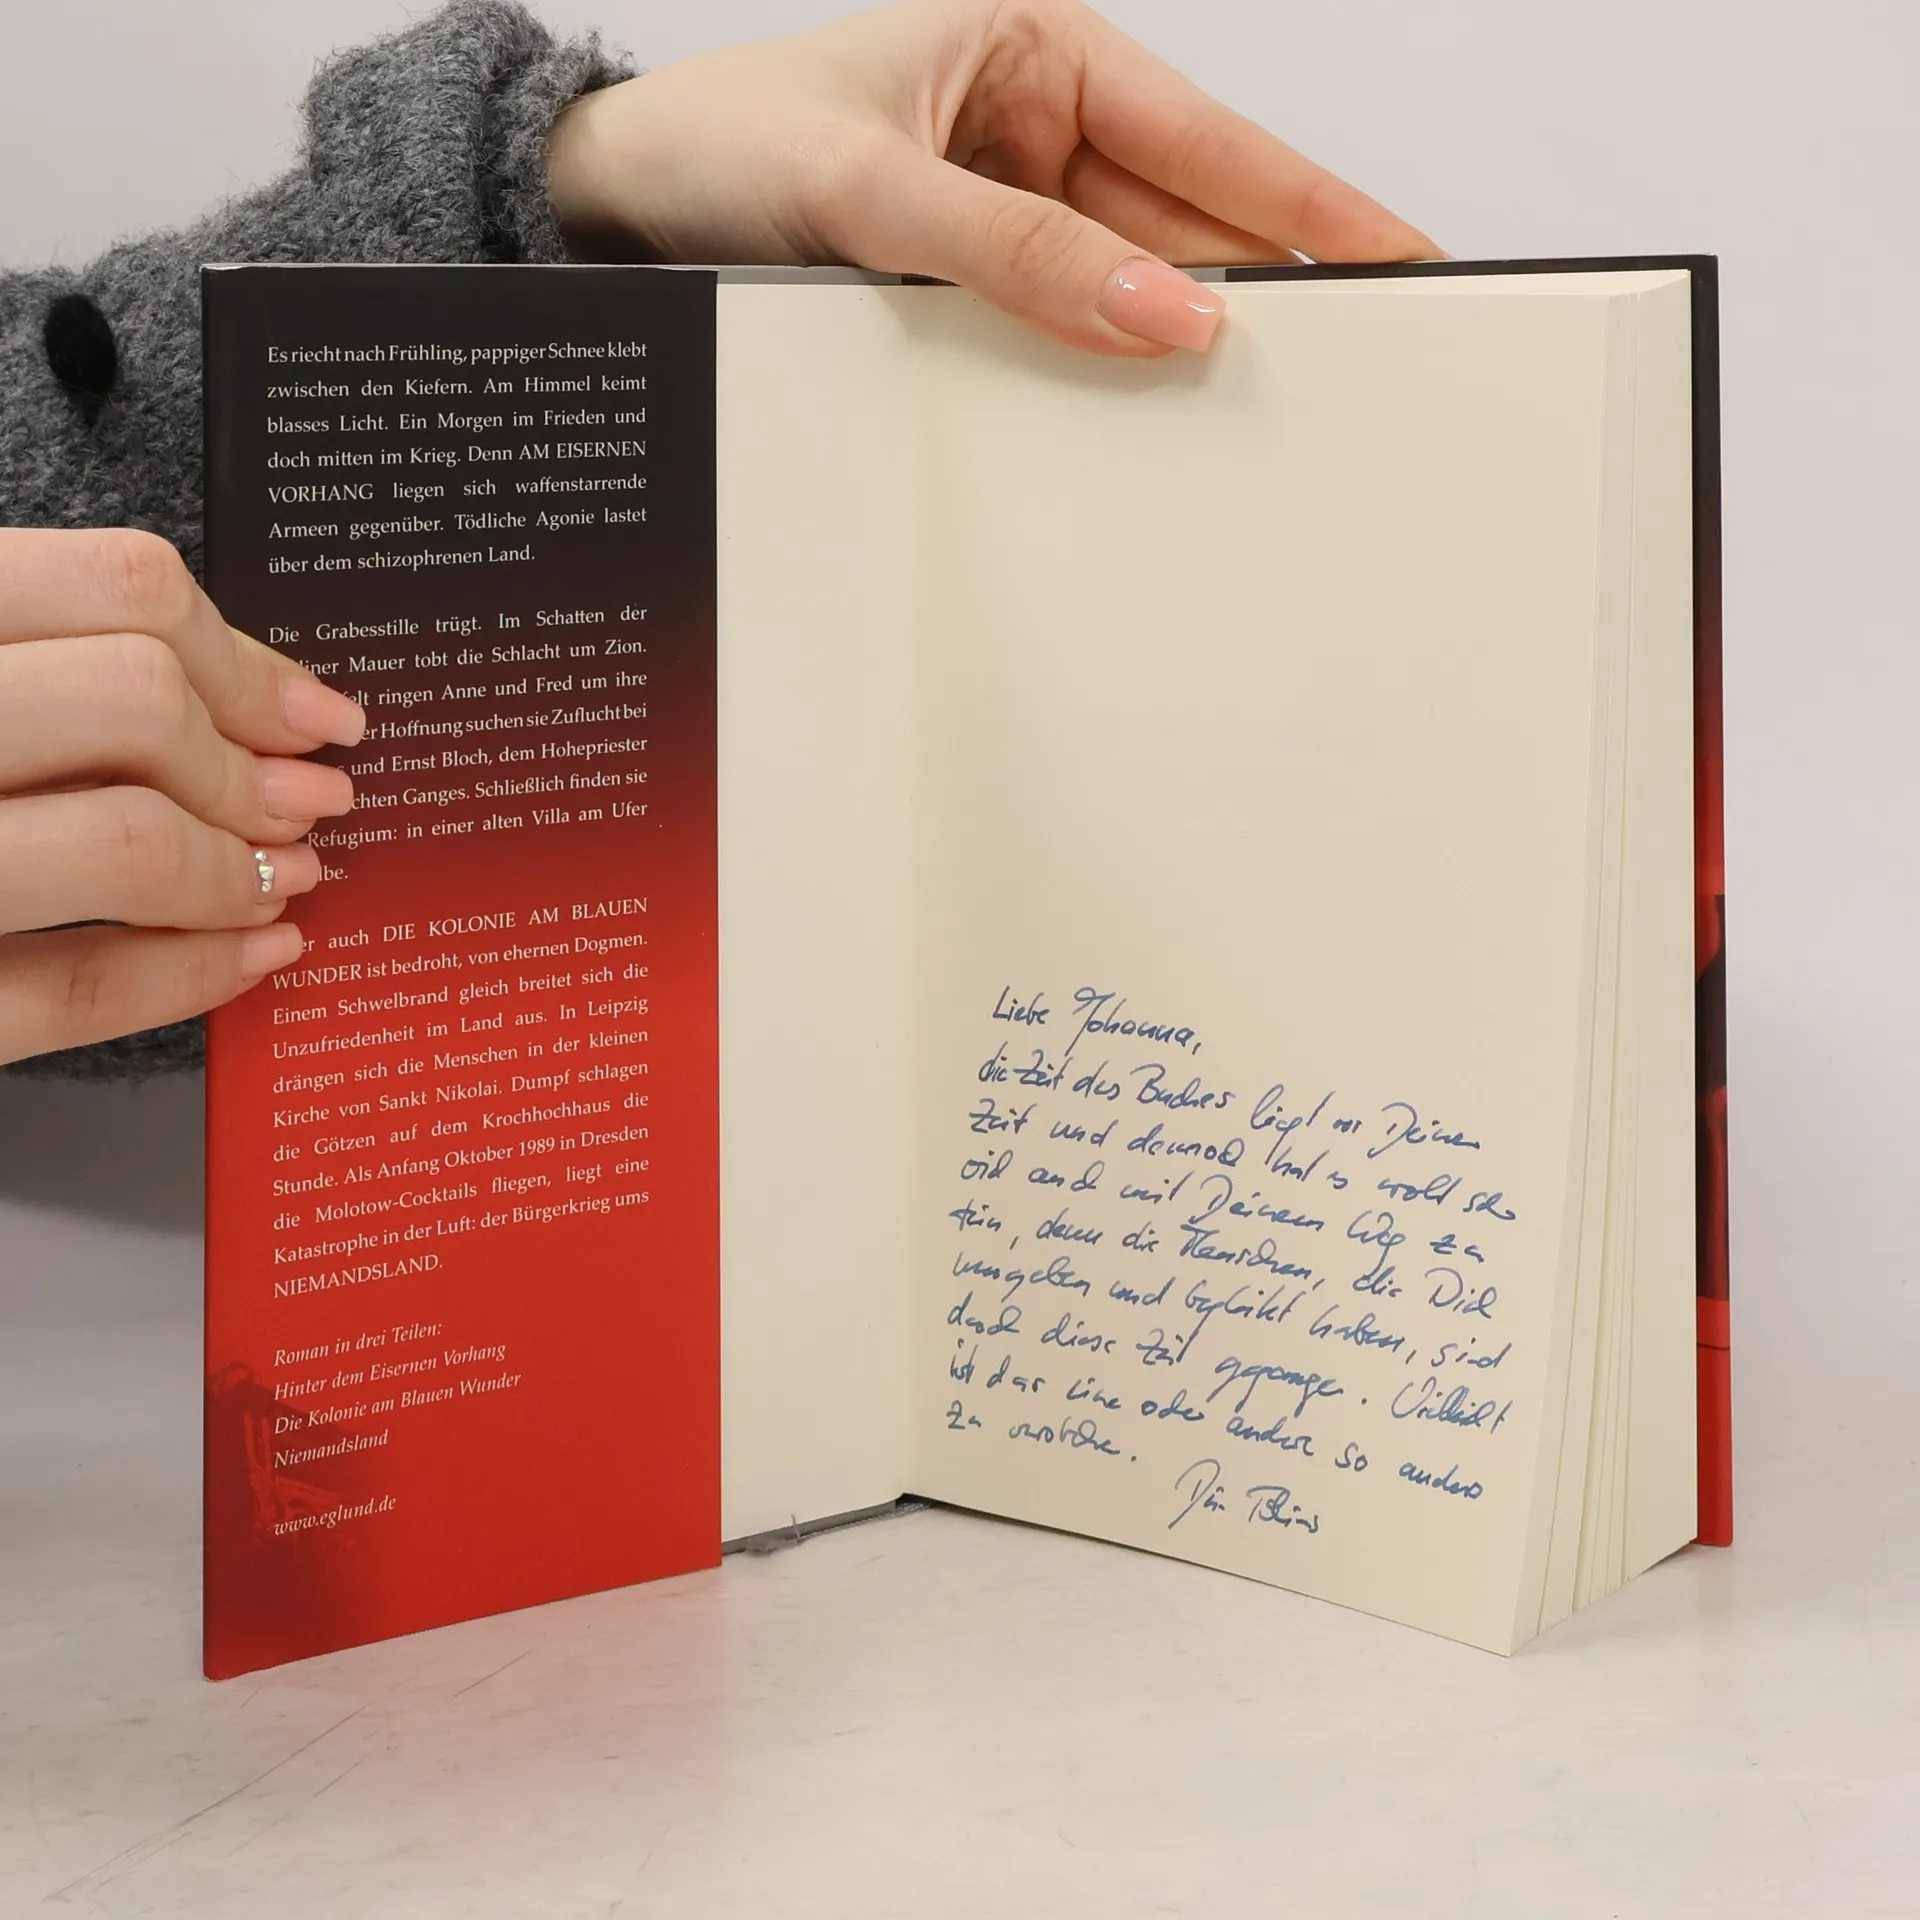 Es riecht nach Frühling, pappiger Schnee klebt
zwischen den Kiefern. Am Himmel keimt
blasses Licht. Ein Morgen im Frieden und
doch mitten im Krieg. Denn AM EISERNEN
VORHANG liegen sich waffenstarrende
Armeen gegenüber. Tödliche Agonie lastet
über dem schizophrenen Land.
Die Grabesstille trügt. Im Schatten der
Mauer tobt die Schlacht um Zion.
ringen Anne und Fred um ihre
Hoffnung suchen sie Zuflucht bei
und Ernst Bloch, dem Hohepriester
Ganges. Schließlich finden sie
Refugium: in einer alten Villa am Ufer
auch DIE KOLONIE AM BLAUEN
WUNDER ist bedroht, von ehernen Dogmen.
Einem Schwelbrand gleich breitet sich die
Unzufriedenheit im Land aus. In Leipzig
drängen sich die Menschen in der kleinen
Kirche von Sankt Nikolai. Dumpf schlagen
die Götzen auf dem Krochhochhaus die
Stunde. Als Anfang Oktober 1989 in Dresden
die Molotow-Cocktails fliegen, liegt eine
Katastrophe in der Luft: der Bürgerkrieg ums
NIEMANDSLAND.
Roman in drei Teilen:
Hinter dem Eisernen Vorhang
Die Kolonie am Blauen Wunder
Niemandsland
www.eglund.de
Liebe Johanna,
die Zeit des Buches liegt vor Deiner
Zeit und dennoch hat es wohl sehr
viel auch mit Deinem Weg zu
tun, denn die Menschen, die Dich
umgeben und begleitet haben, sind
durch diese Zeit gegangen. Vielleicht
ist das eine oder andere so anders
zu verstehen.